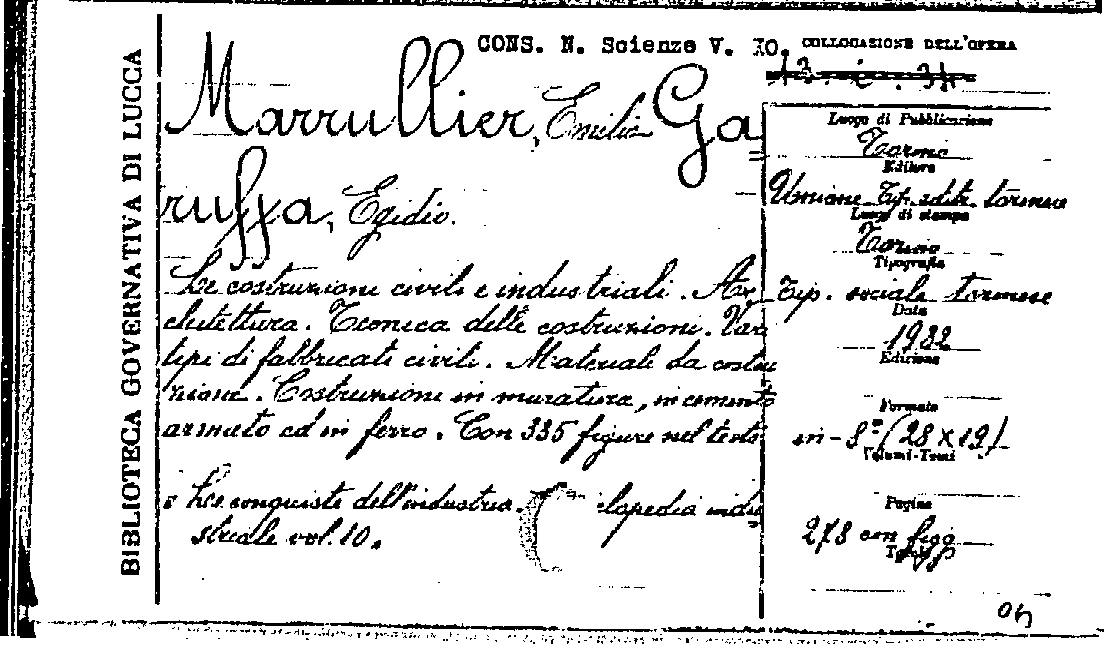 BIBLIOTECA GOVERNATIVA DI LUCCA
CONS. N. Scienze V. 70. COLLOCAZIONE DELL'OPERA
Marrullier, Emilio Ga
ruffa, Egidio.
Le costruzioni civili e industriali. Ar
chitettura. Tecnica delle costruzioni. Vari
tipi di fabbricati civili. Materiali da costru
zione. Costruzioni in muratura, in cemento
armato ed in ferro. Con 335 figure nel testo
Le conquiste dell'industria. clopedia indu
striale vol. 10.
Luogo di Pubblicazione
Torino
Editore
Unione Tip. edit. torinese
Luogo di stampa
Torino
Tipografia
Tip. sociale torinese
Data
1932
Edizione
Formato
in-8° (28 x 19)
Volumi-Tomi
Pagine
278 con figg